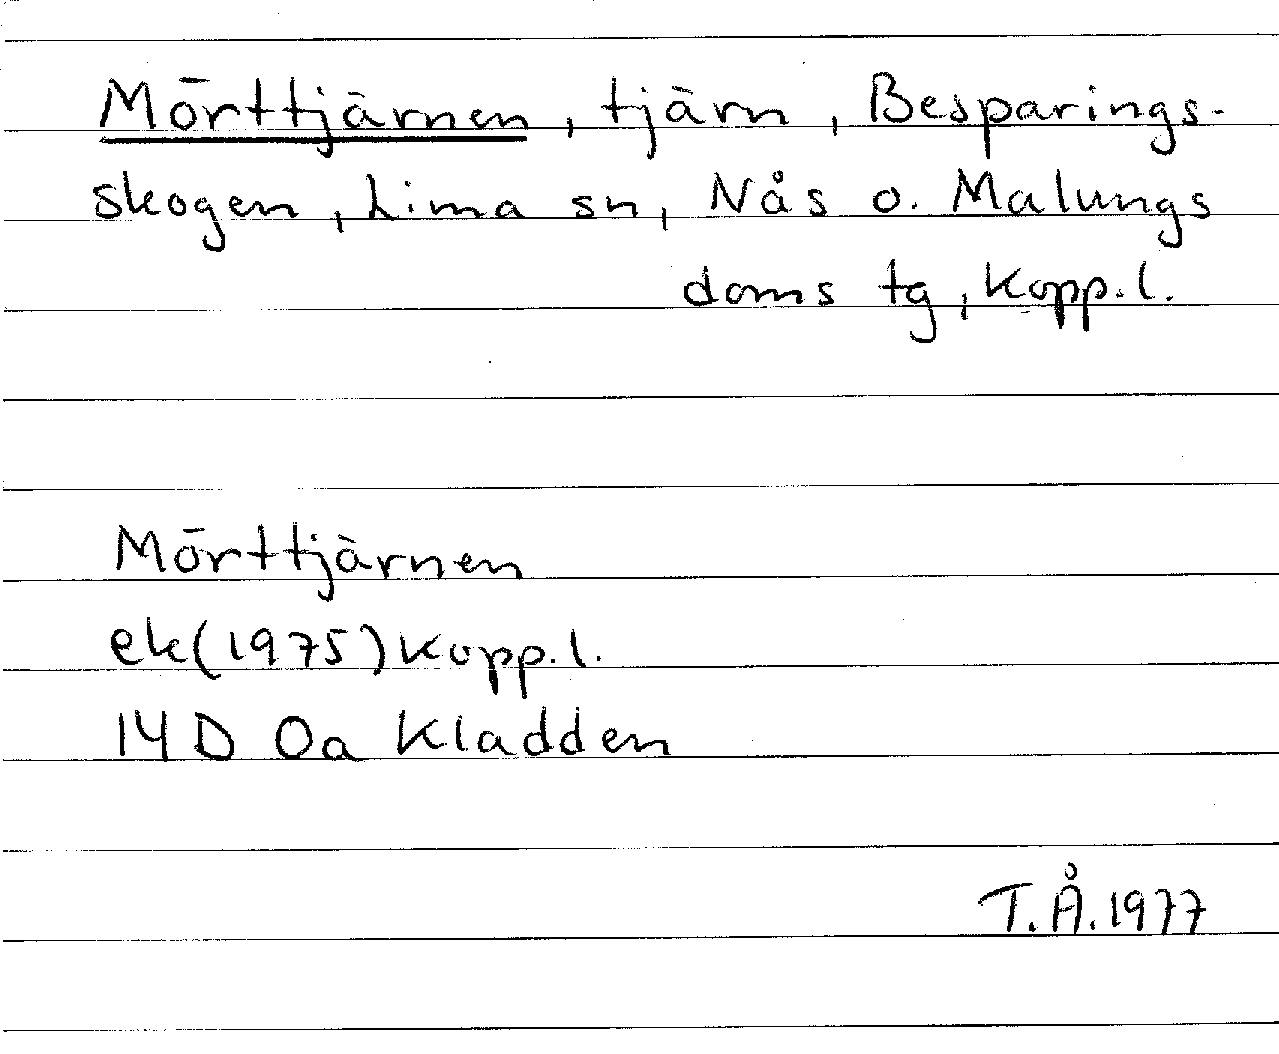 Mörttjärnen, tjärn, Besparings-
skogen, Lima sn, Nås o. Malungs
doms tg, Kopp.l.
Mörttjärnen
ek(1975) Kopp.l.
14D 0a Kladden
T.Å.1977